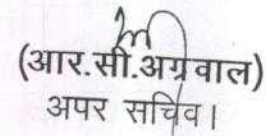 (आर.सी.अग्रवाल)
अपर सचिव।